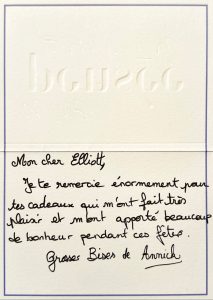 Mon cher Elliott,
Je te remercie énormement pour
tes cadeaux qui m'ont fait très
plaisir et m'ont apporté beaucoup
de bonheur pendant ces fêtes.
Grosses Bises de Annick